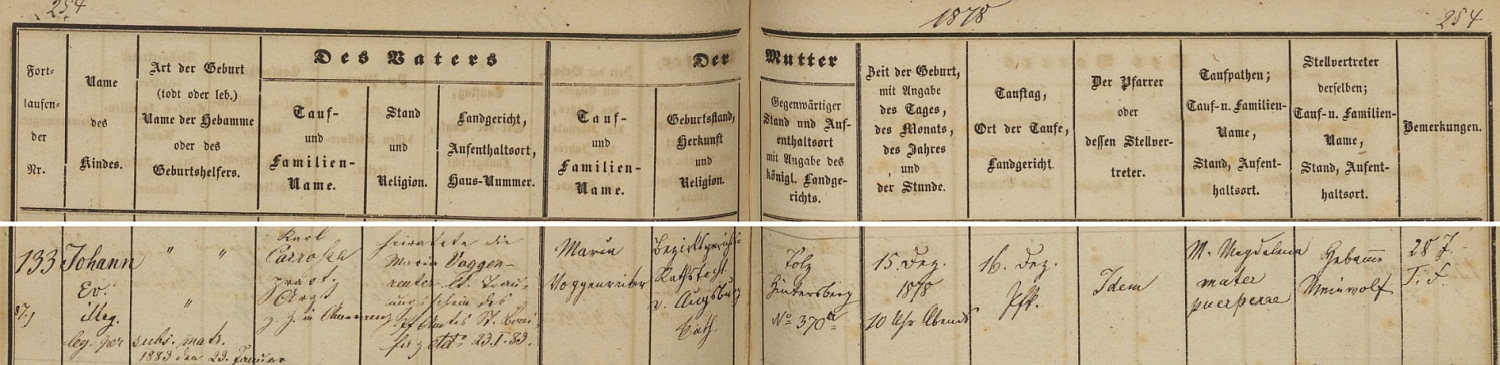 254
1878
254
Fort-
laufen-
der
Nr.
Name
des
Kindes.
Art der Geburt
(todt oder leb.)
Name der Hebamme
oder des
Geburtshelfers.
Des Vaters
Tauf-
und
Familien-
Name.
Stand
und
Religion.
Landgericht,
Aufenthaltsort,
Haus-Nummer.
Der Mutter
Tauf-
und
Familien-
Name.
Geburtsstand,
Herkunft
und
Religion.
Gegenwärtiger
Stand und Auf-
enthaltsort
mit Angabe des
königl. Landge-
richts.
Zeit der Geburt,
mit Angabe
des Tages,
des Monats,
des Jahres
und
der Stunde.
Tauftag,
Ort der Taufe,
Landgericht.
Der Pfarrer
oder
dessen Stellver-
treter.
Taufpathen;
Tauf-u. Familien-
Name,
Stand, Aufent-
haltsort.
Stellvertreter
derselben;
Tauf-u. Familien-
Name,
Stand, Aufent-
haltsort.
Bemerkungen.
133
Johann
Ev.
illeg.
leg. per subs. matr.
1883 den 23. Januar
" "
"
Karl
Carossa
pract.
Arzt
z. Z. in
heiratete die
Maria Voggen-
reiter lt. Trau-
ungsschein des
Pfarramtes St. Boni-
faz dto 23.I.83.
Maria
Voggenreiter
Bezirksgerichts-
Rathstocht.
v. Augsburg
kath.
Tölz
Hintersberg
No 370
15. Dez.
1878
10 Uhr Abends
16. Dez.
Pfk.
Idem
M. Magdalena
mater
puerperae
Hebamme
28 J.
T. F.